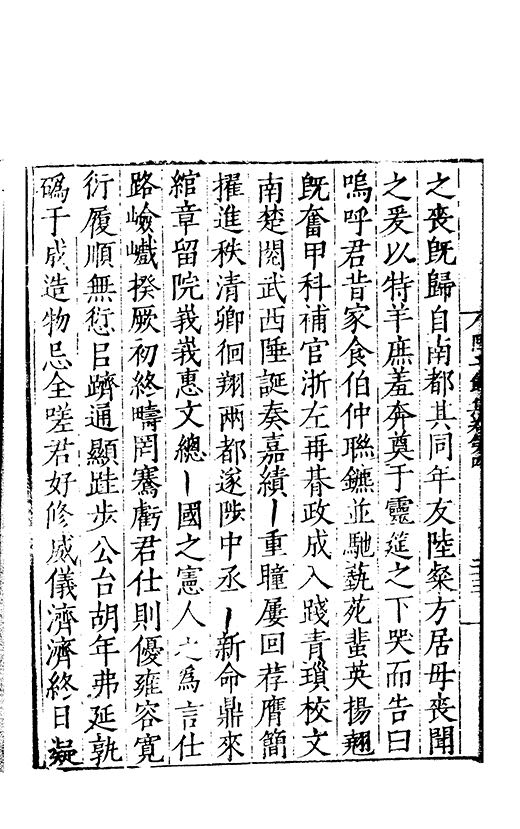 之喪既歸自南都其同年友陸粲方居母喪聞
之爰以特羊庶羞奔奠于靈筵之下哭而告曰
嗚呼君昔家食伯仲聯鑣並馳藝苑蜚英揚翹
既奮甲科補官浙左再朞政成入踐青瑣校文
南楚閱武西陲誕奏嘉績重瞳屢回荐膺簡
擢進秩清卿徊翔兩都遂陟中丞新命鼎來
綰章留院峩峩惠文總國之憲人之為言仕
路嶮巇揆厥初終疇罔騫虧君仕則優雍容寬
衍履順無愆㠯躋通顯跬步公台胡年弗延孰
碼于成造物忌全嗟君好修威儀濟濟終日凝